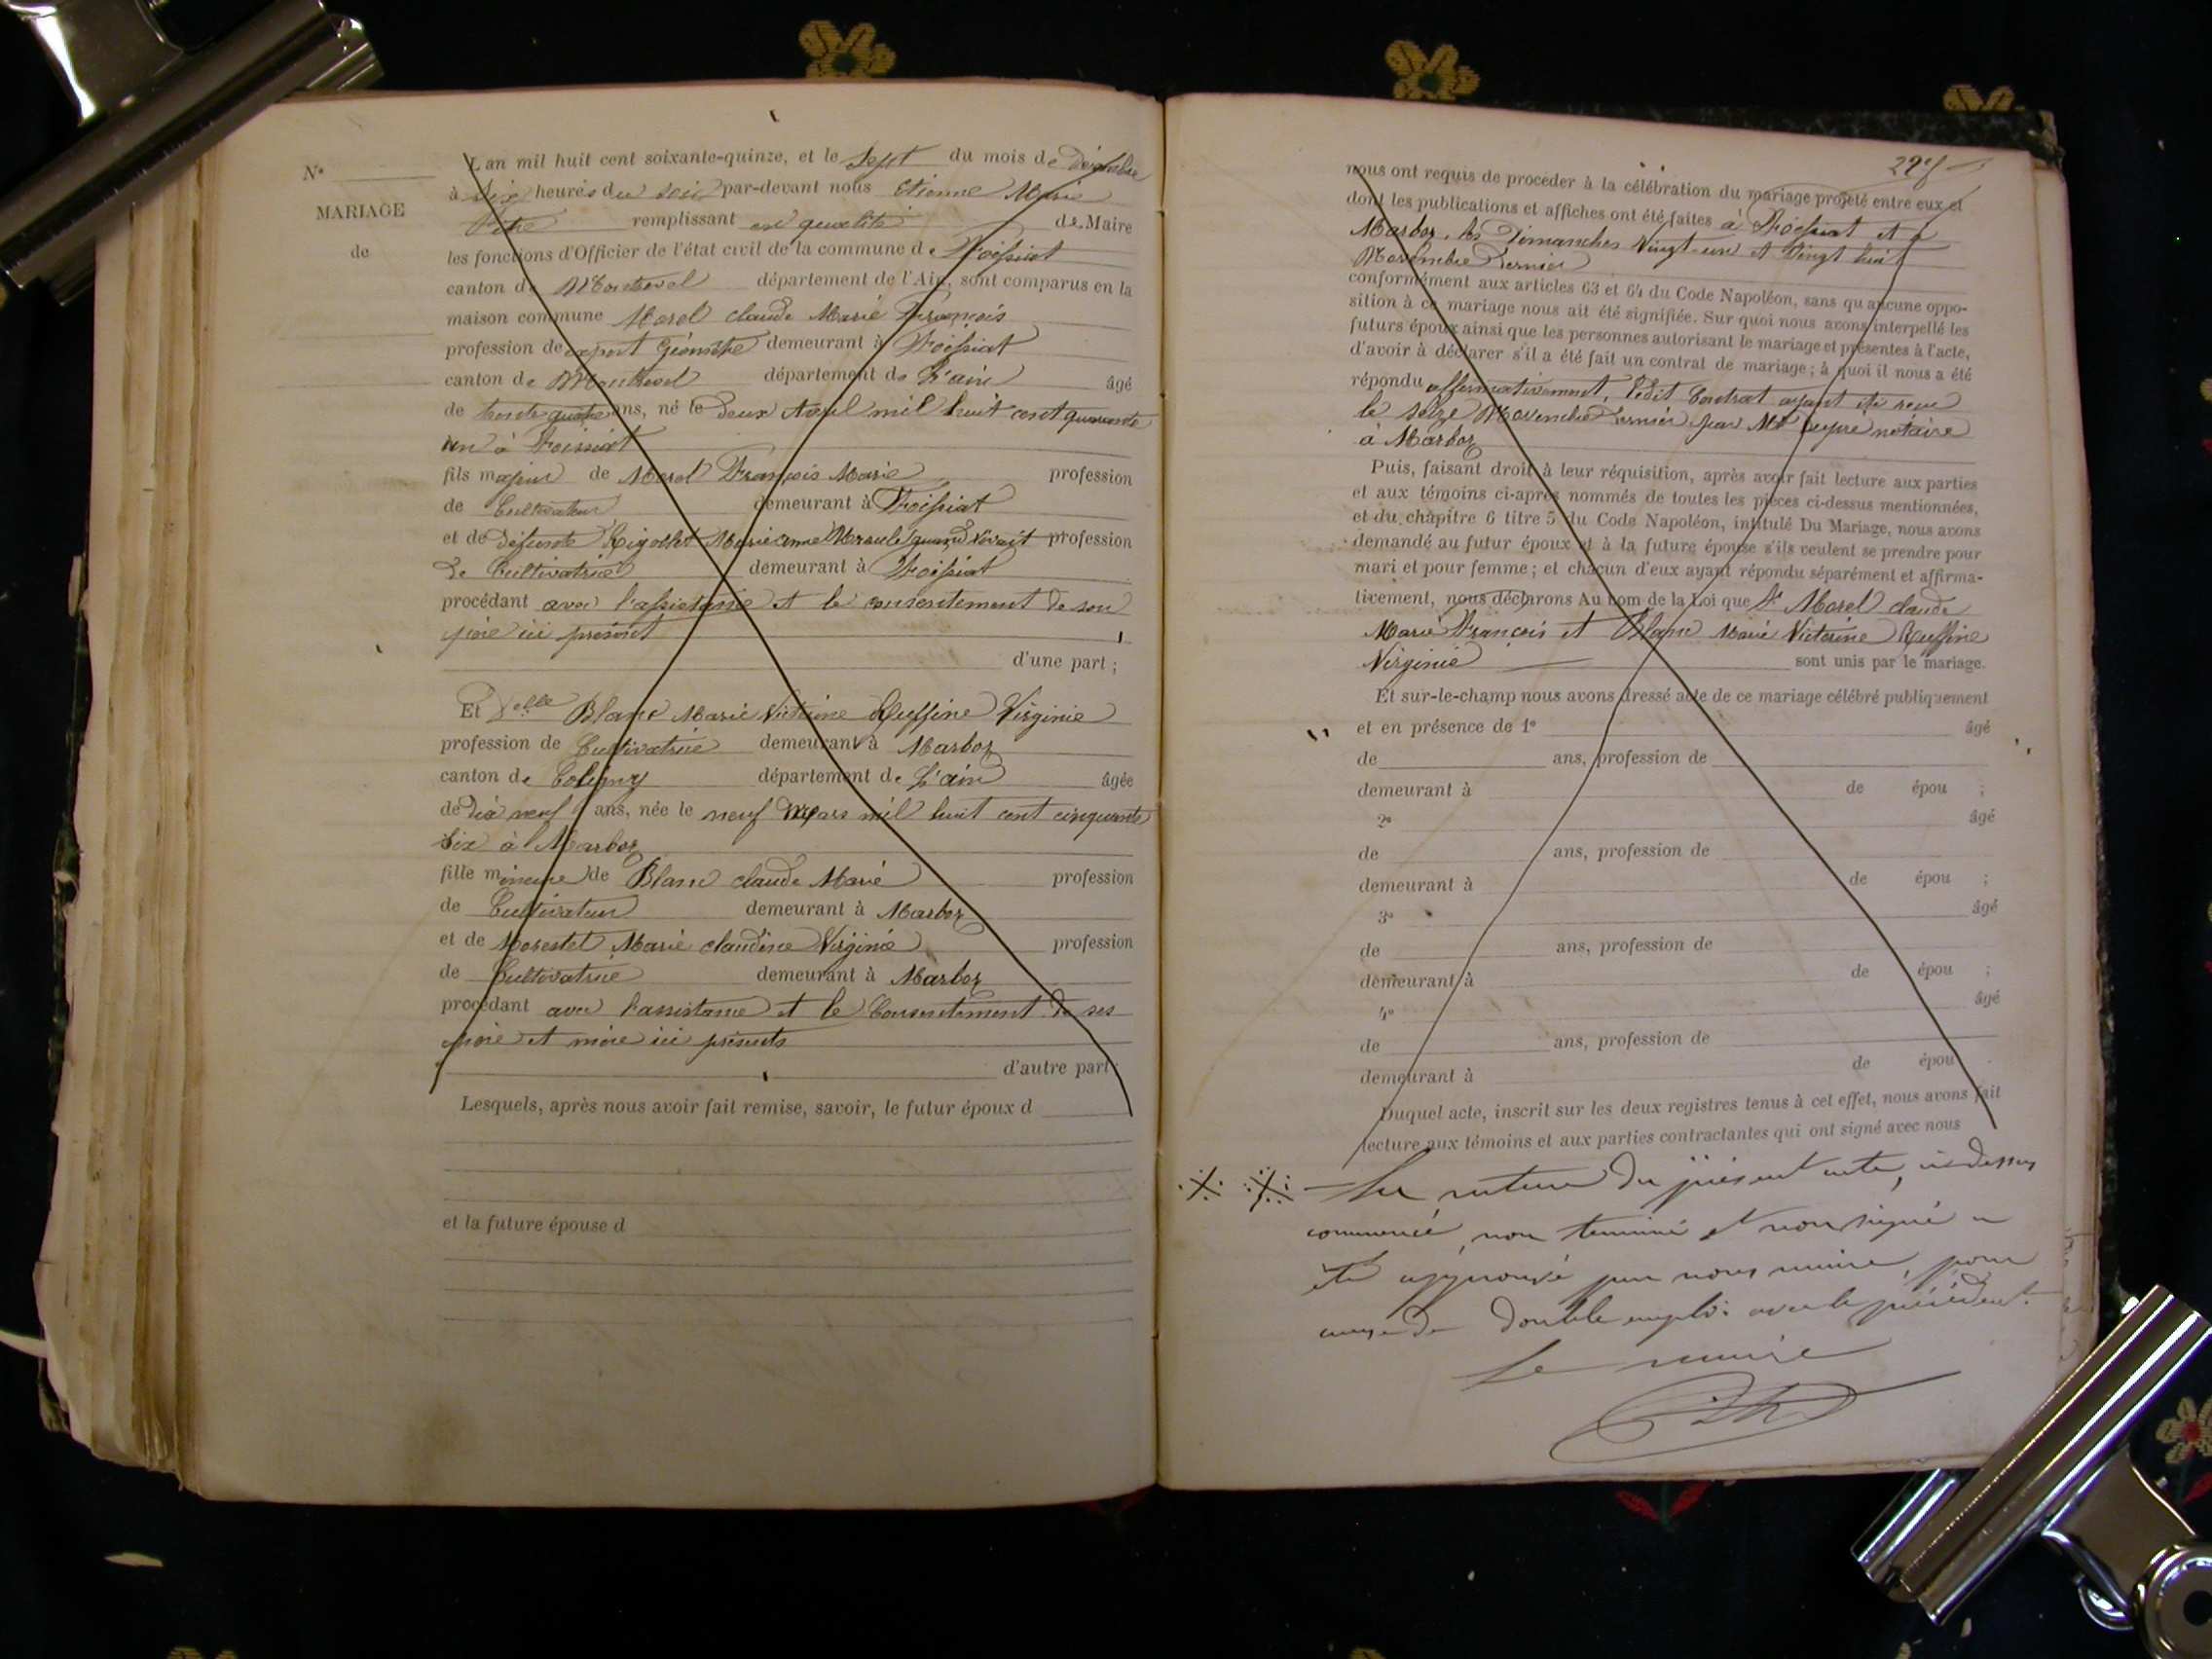 N°
MARIAGE
de
L'an mil huit cent soixante-quinze, et le Sept du mois de Décembre
à Six heures du soir par-devant nous Etienne Marie
remplissant en qualité de Maire
les fonctions d'Officier de l'état civil de la commune de Foissiat
canton de Montrevel département de l'Ain, sont comparus en la
maison commune Morel claude Marie François
profession de expert Géomètre demeurant à Foissiat
canton de Montrevel département de L'ain âgé
de trente quatre ans, né le Deux Avril mil huit cent quarante
un à Foissiat
fils majeur de Morel François Marie profession
de Cultivateur demeurant à Foissiat
et de défunte Rigollet Marie anne quand vivait profession
De Cultivatrice demeurant à Foissiat
procédant avec l'assistance et le consentement de son
père ici présent
d'une part ;
Et Delle Blanc Marie Victorine Ruffine Virginie
profession de Cultivatrice demeurant à Marboz
canton de Coligny département de L'ain âgée
de dix neuf ans, née le neuf Mars mil huit cent cinquante
Six à Marboz
fille mineure de Blanc claude Marie profession
de Cultivateur demeurant à Marboz
et de Morestel Marie claudine Virginie profession
de Cultivatrice demeurant à Marboz
procédant avec l'assistance et le Consentement de ses
père et mère ici présents
d'autre part ;
Lesquels, après nous avoir fait remise, savoir, le futur époux d
et la future épouse d
nous ont requis de procéder à la célébration du mariage projeté entre eux et
dont les publications et affiches ont été faites à Foissiat et à
Marboz, les Dimanches Vingt-un et Vingt huit
Novembre Dernier
conformément aux articles 63 et 64 du Code Napoléon, sans qu'aucune oppo-
sition à ce mariage nous ait été signifiée. Sur quoi nous avons interpellé les
futurs époux ainsi que les personnes autorisant le mariage et présentes à l'acte,
d'avoir à déclarer s'il a été fait un contrat de mariage ; à quoi il nous a été
répondu affirmativement, ledit Contrat ayant été reçu
le seize Novembre Dernier par Me Dupré notaire
à Marboz
Puis, faisant droit à leur réquisition, après avoir fait lecture aux parties
et aux témoins ci-après nommés de toutes les pièces ci-dessus mentionnées,
et du chapitre 6 titre 5 du Code Napoléon, intitulé Du Mariage, nous avons
demandé au futur époux et à la future épouse s'ils veulent se prendre pour
mari et pour femme ; et chacun d'eux ayant répondu séparément et affirma-
tivement, nous déclarons Au nom de la Loi que Sr Morel claude
Marie François et Blanc Marie Victorine Ruffine
Virginie sont unis par le mariage.
Et sur-le-champ nous avons dressé acte de ce mariage célébré publiquement
et en présence de 1° âgé
de ans, profession de
demeurant à de épou ;
2° âgé
de ans, profession de
demeurant à de épou ;
3° âgé
de ans, profession de
demeurant à de épou ;
4° âgé
de ans, profession de
demeurant à de épou
Duquel acte, inscrit sur les deux registres tenus à cet effet, nous avons fait
lecture aux témoins et aux parties contractantes qui ont signé avec nous
La rature du présent acte, ci-dessus
commencé, non terminé et non signé a
été approuvé par nous maire, pour
cause de double emploi avec le précédent.
Le maire